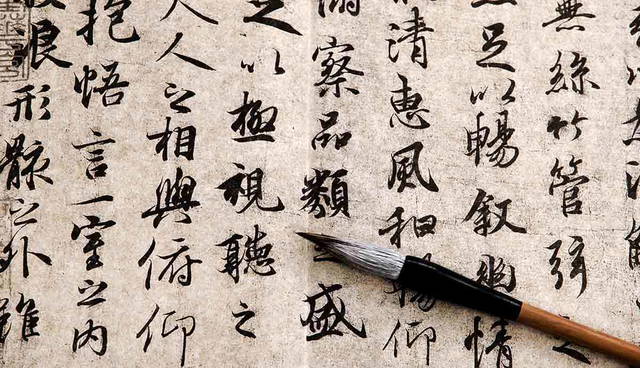 無絲竹管弦之
足以暢叙幽情
清惠風和暢仰
察品類之盛
之以極視聽之
人之相與俯仰
抱悟言一室之內
浪形骸之外雖